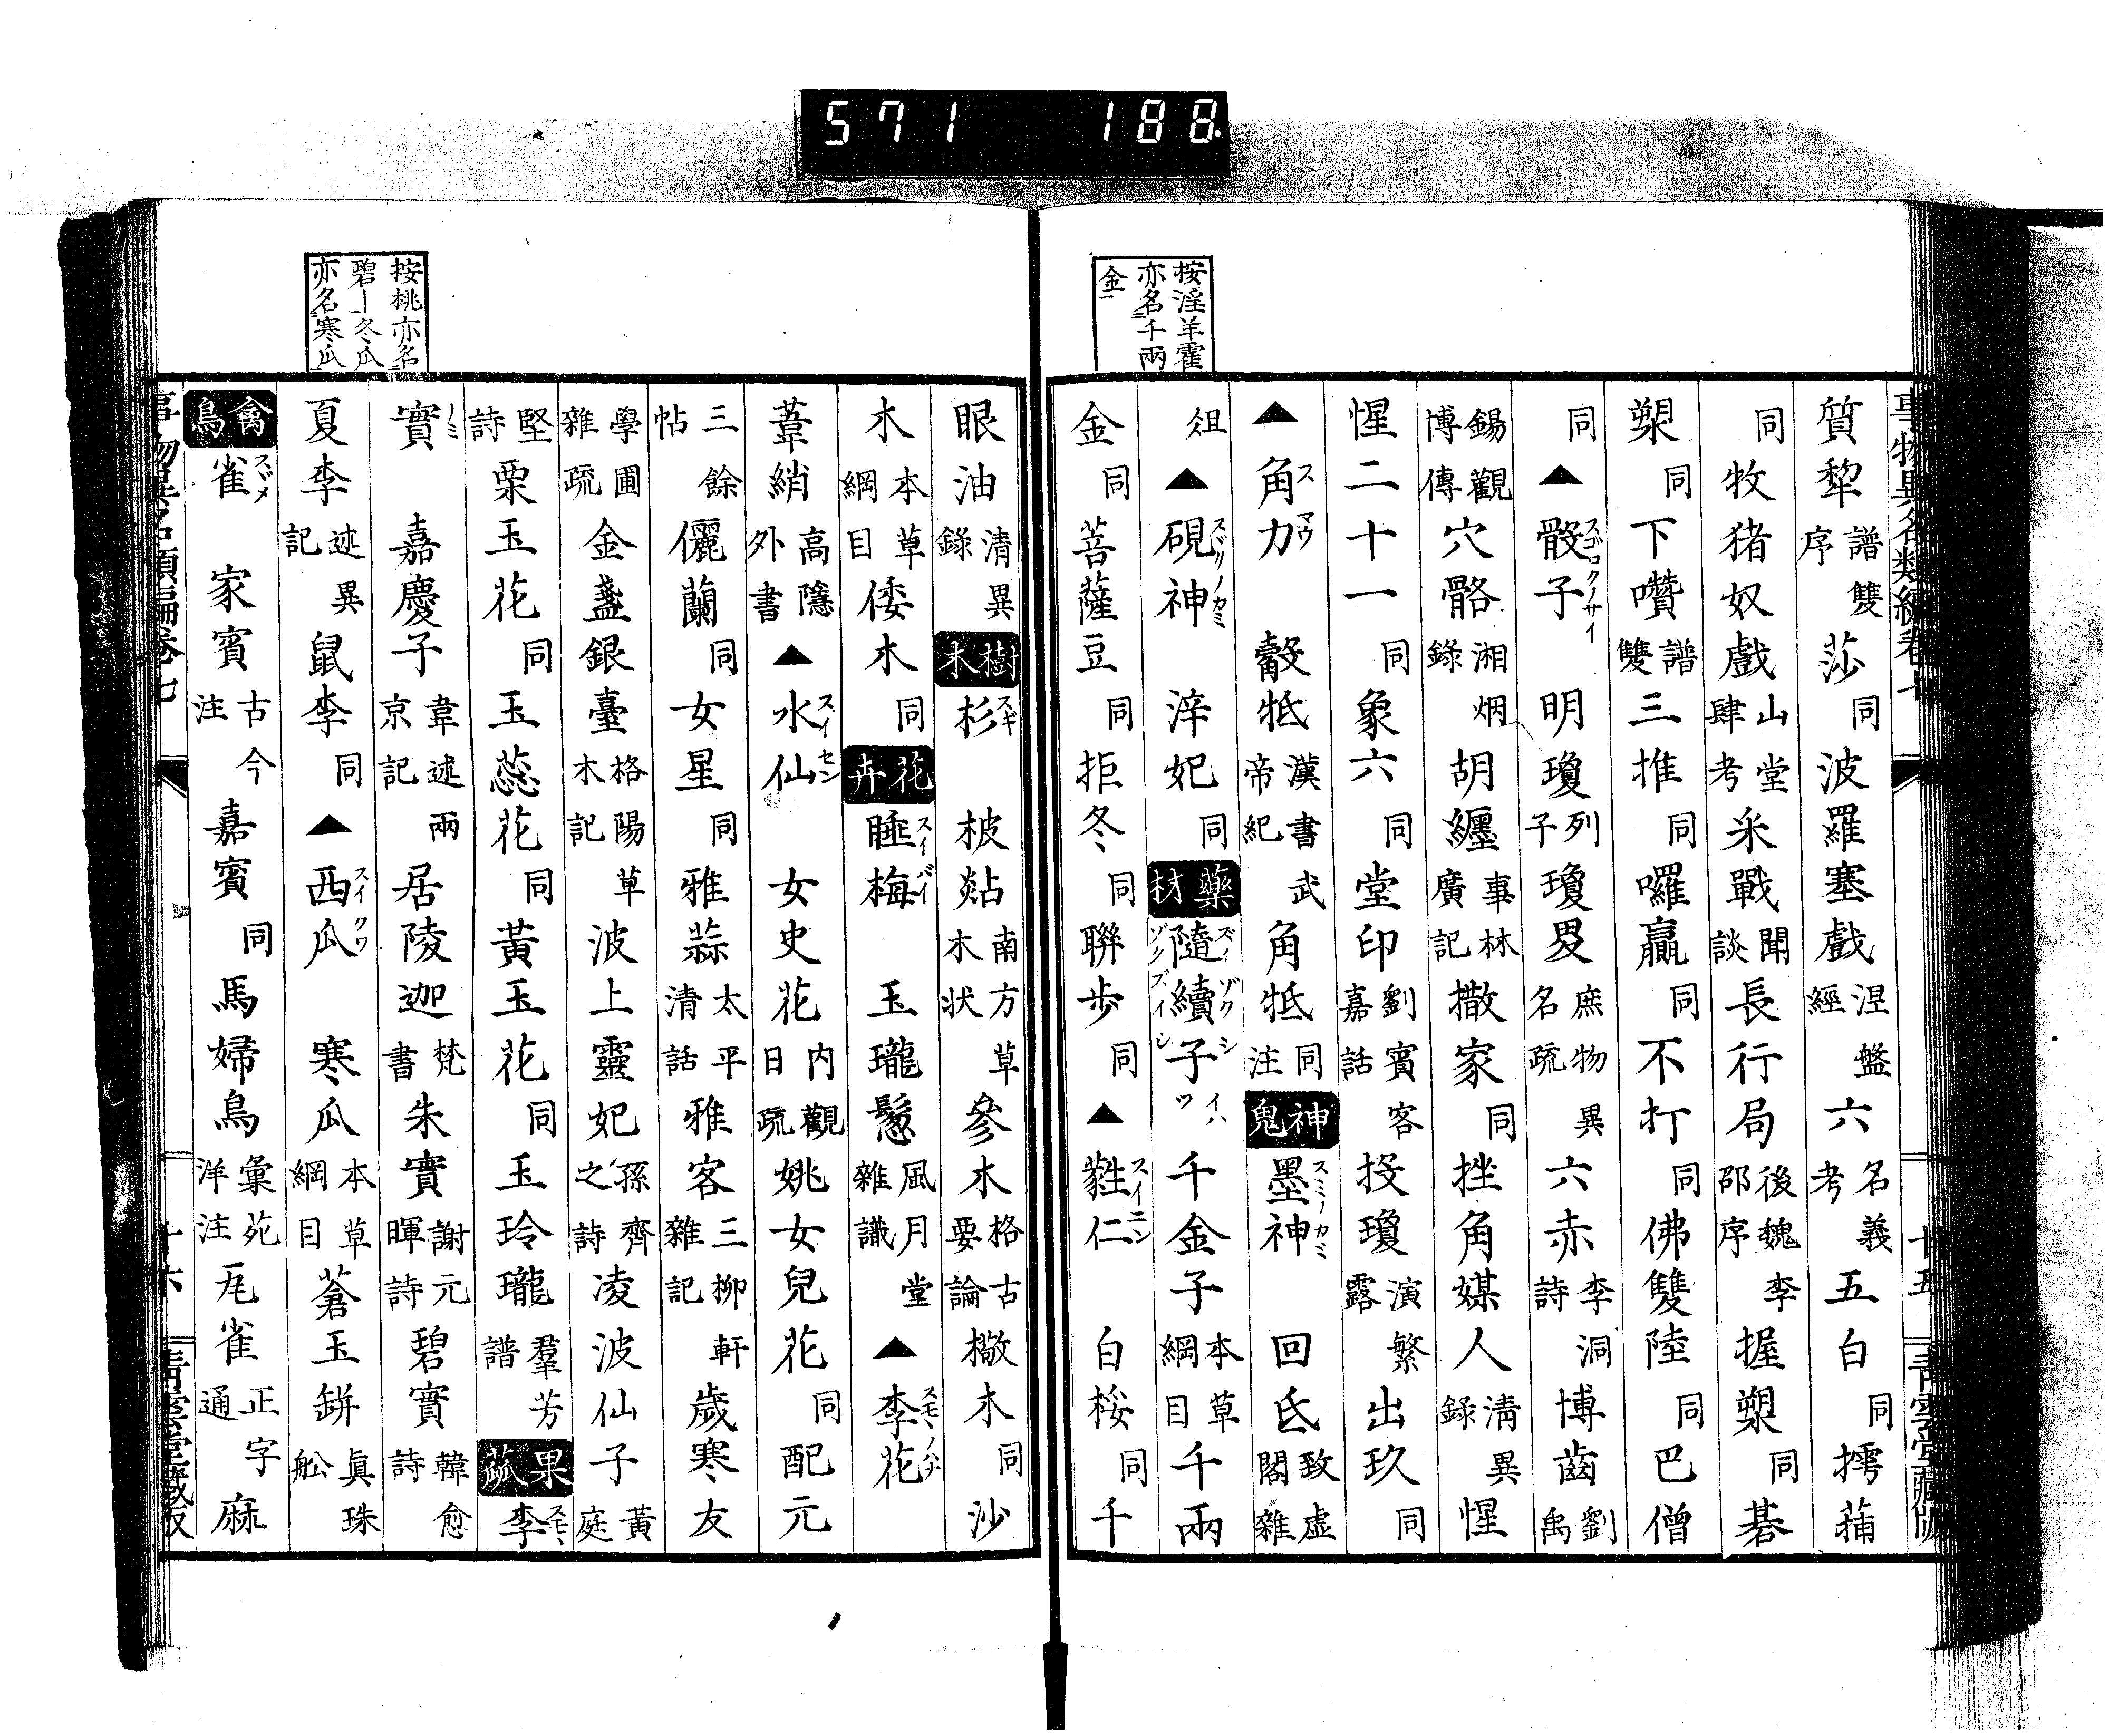 571 188
按淫羊霍
亦名千兩
金
質犂譜雙序莎同波羅塞戲涅盤經六名義考五白同摴蒱
同牧猪奴戲山堂肆考釆戰聞談長行局後魏李邵序握槊同碁
槊同下囋譜雙三推同囉贏同不打同佛雙陸同巴僧
同▲骰子スゴロクノサイ明瓊列子瓊畟庶物異名疏六赤李洞詩博齒劉禹
錫觀博傳穴骼湘烟錄胡纏事林廣記撒家同挫角媒人清異錄惺
惺二十一同象六同堂印劉賓客嘉話投瓊演繁露出玖同
▲角力スマウ觳牴漢書武帝紀角牴同注神鬼墨神スミノカミ回氐致虛閣雜
俎▲硯神スヾリノカミ淬妃同藥材隨續子千金子本草綱目千兩
金同菩薩豆同拒冬同聯歩同▲蕤仁スイニン白桵同千
按桃亦名
碧―冬瓜
亦名寒瓜
眼油清異錄樹木杉スギ柀煔南方草木状參木格古要論橵木同沙
木本草綱目倭木同花卉睡梅スイバイ玉瓏鬆風月堂雜識▲李花スモヽノハナ
葦綃高隱外書▲水仙スイセン女史花内觀日疏姚女兒花同配元
三餘帖儷蘭同女星同雅蒜太平清話雅客三柳軒雜記歲寒友
學圃雜疏金盞銀臺格陽草木記波上靈妃孫齊之詩凌波仙子黃庭
堅詩栗玉花同玉蕊花同黃玉花同玉玲瓏羣芳譜果蓏李スモヽ
實ノミ嘉慶子韋述兩京記居陵迦梵書朱實謝元暉詩碧實韓愈詩
夏李述異記鼠李同▲西瓜スイクワ寒瓜本草綱目蒼玉缾眞珠舩
禽鳥雀スヾメ家賓古今注嘉賓同馬婦鳥彙苑洋注㞑雀正字通麻